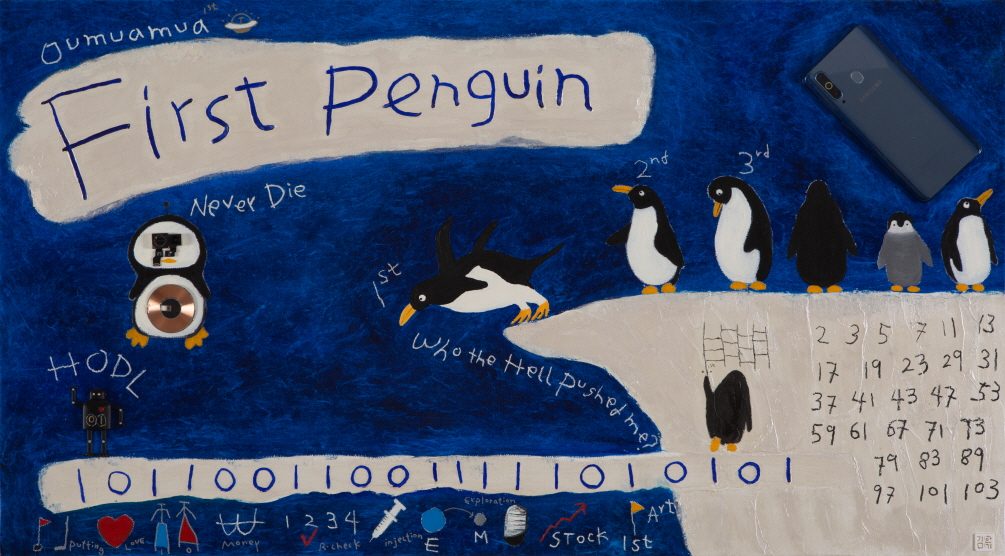 Oumuamua 1st
First Penguin
Never Die
2nd
3rd
SAMSUNG
1st
Who the Hell pushed me?
HODL
2 3 5 7 11 13
17 19 23 29 31
37 41 43 47 53
59 61 67 71 73
79 83 89
97 101 103
01
10110011001111101010 1
putting
LOVE
01
₩
Money
1 2 3 4
Ri:check
injection
E
Exploration
M
STOCK
1st
Art